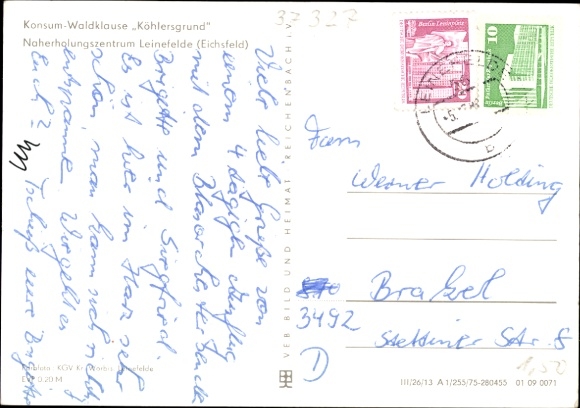 Konsum-Waldklause „Köhlersgrund"
Naherholungszentrum Leinefelde (Eichsfeld)
37 327
Viele liebe Grüße von
einem 4 tägigen Ausflug
mit dem Blasorchester
Brigitte und Siegfried.
Es ist hier im Harz sehr
schön, man kann sich richtig
entspannen. Wie geht es
Euch?
Tschüß eure Brigitte
VERLAG BILD UND HEIMAT REICHENBACH i. V.
Berlin Leninplatz
10
Berlin
LEINEFELDE
Fam
Werner Holding
Brakel
3492
Stettiner Str. 8
D
1,50
EVP 0,20 M
III/26/13 A 1/255/75-280455 01 09 0071